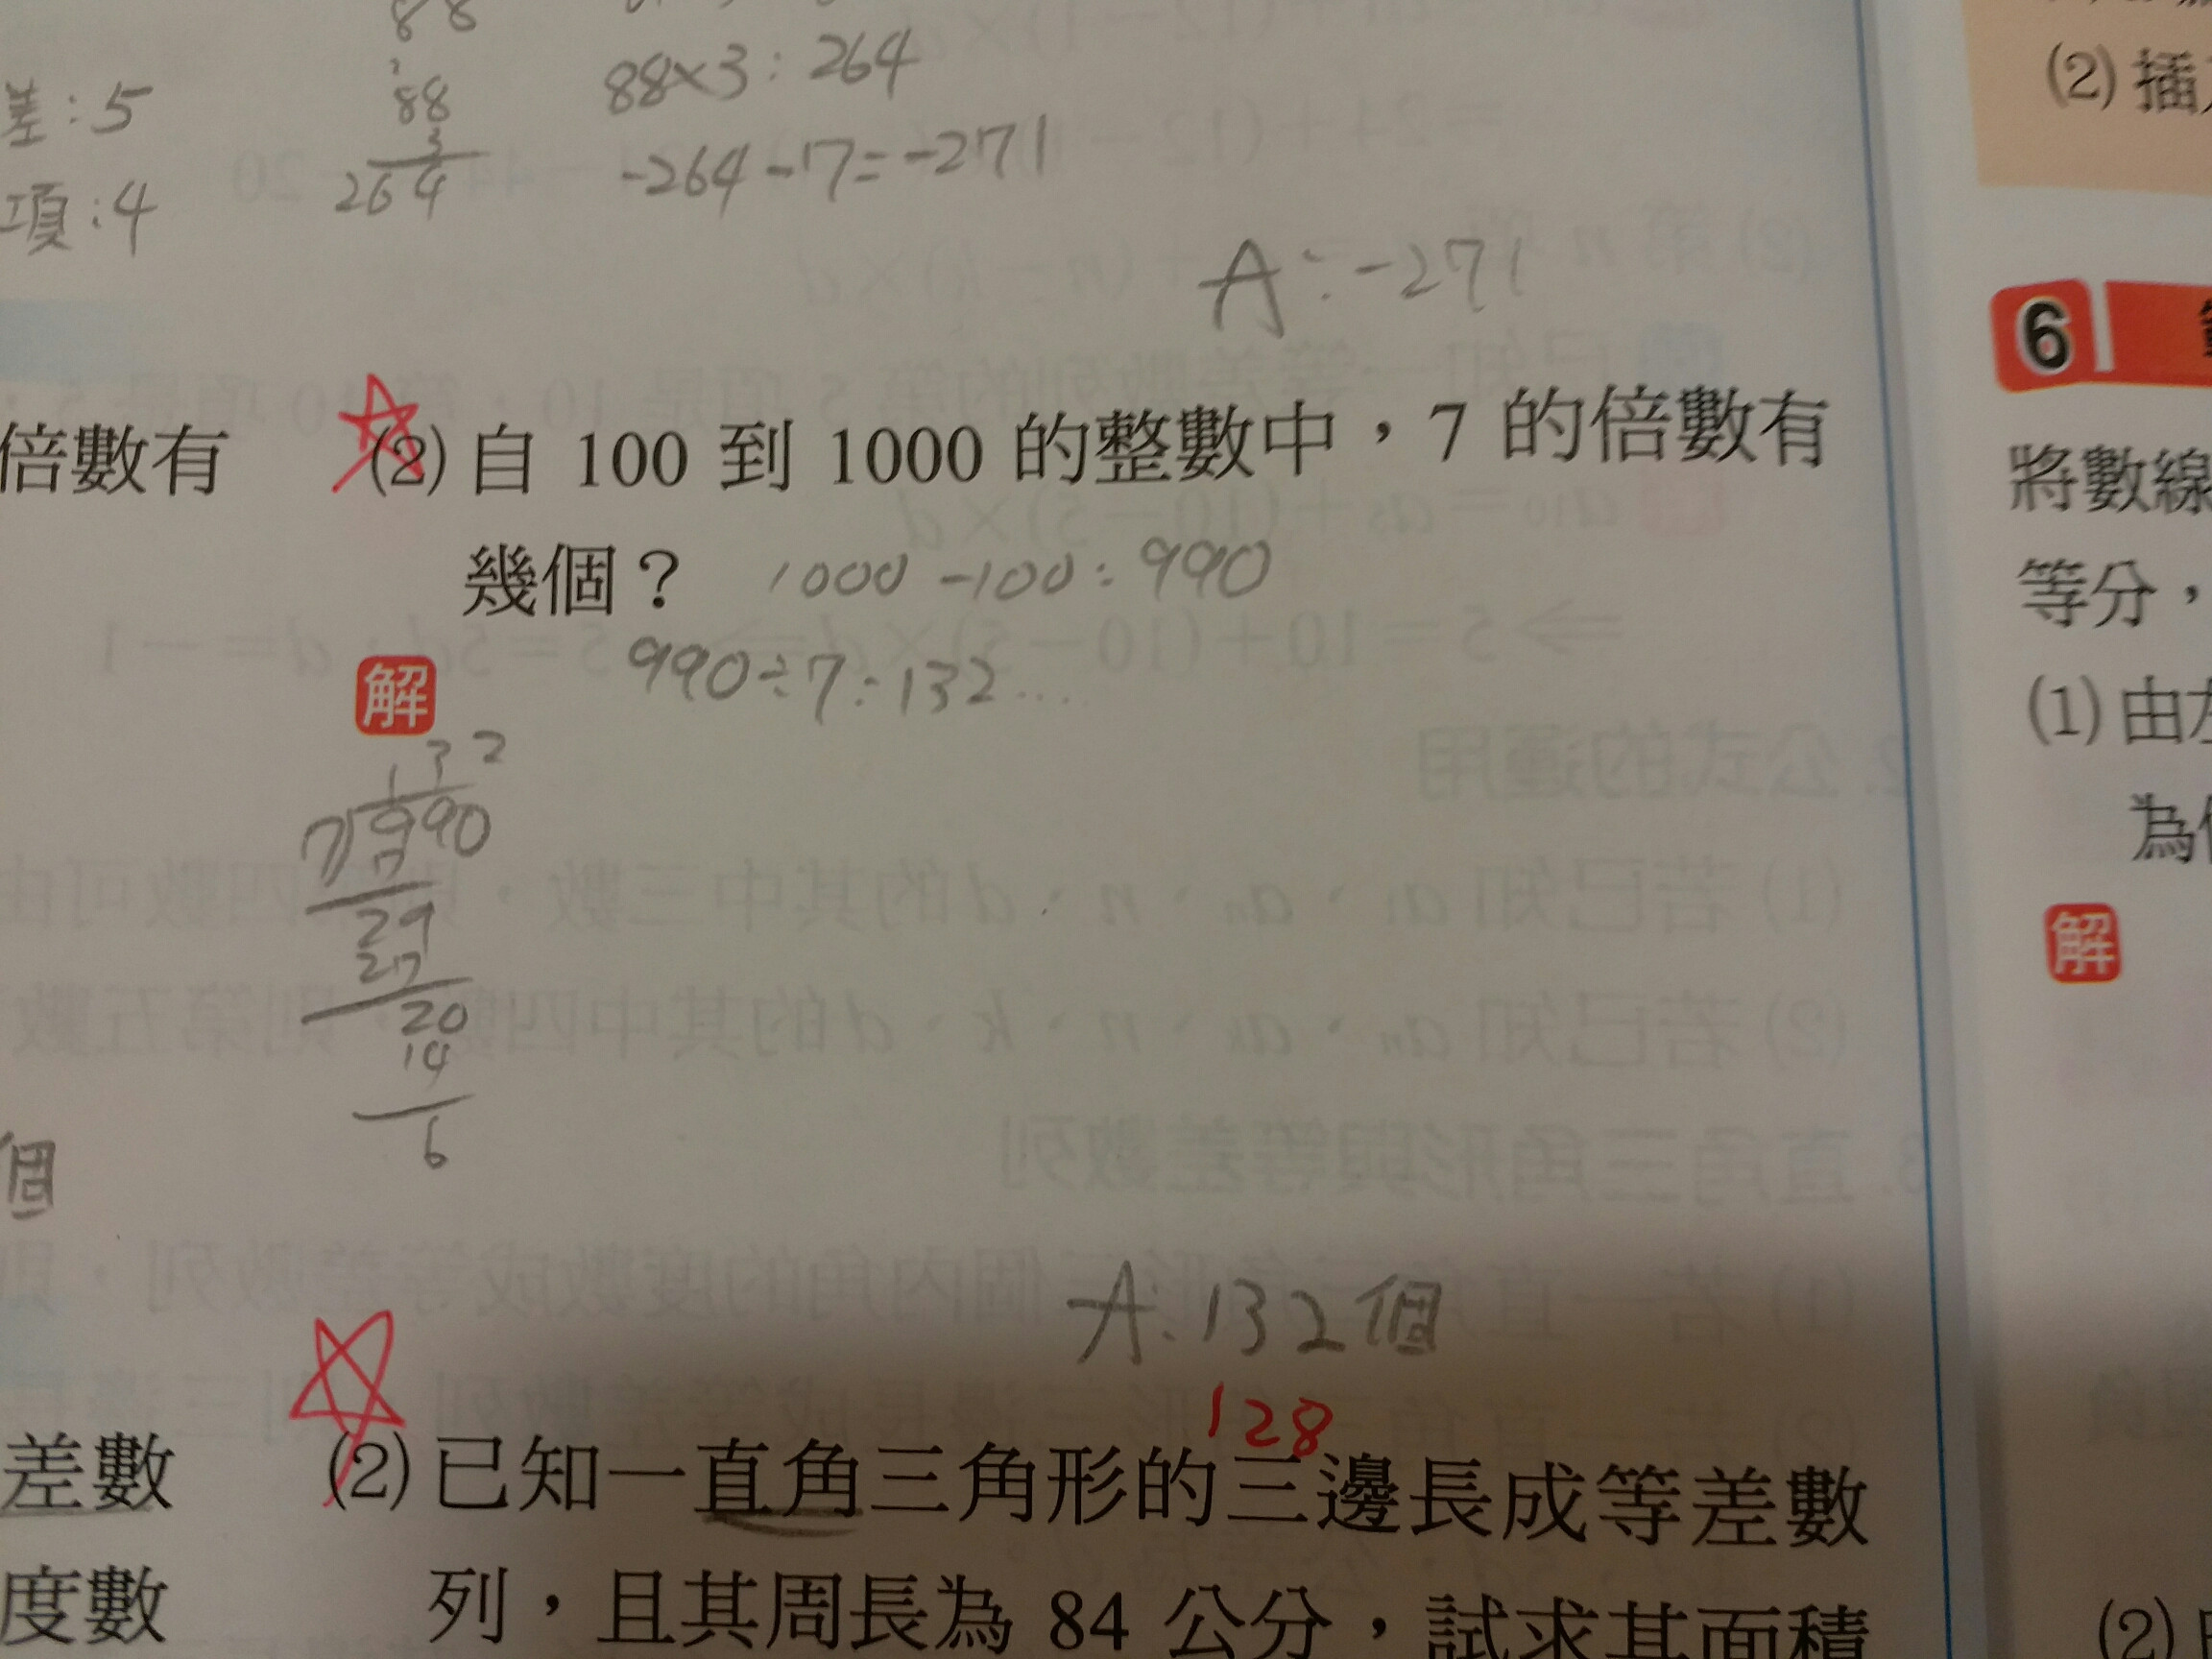 88
差:5
88
3
264
項:4
88×3:264
-264-17=-271
A:-271
倍數有
(2) 自 100 到 1000 的整數中,7 的倍數有
幾個?
1000-100:990
解
990÷7:132...
132
7 990
7
29
27
20
14
6
個
A:132個
128
差數
(2) 已知一直角三角形的三邊長成等差數
度數
列,且其周長為 84 公分,試求其面積
(2) 插
6
將數線
等分,
(1) 由
為
解
(2)